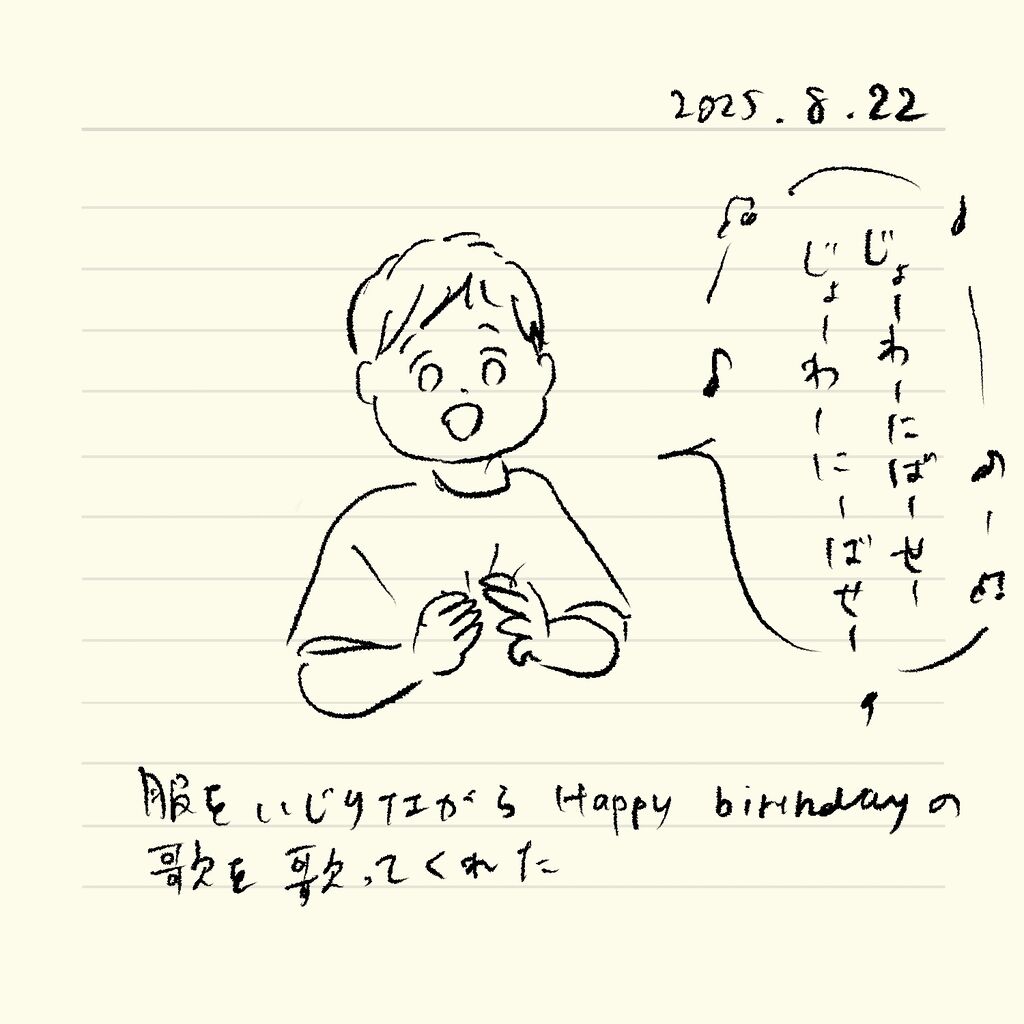 2025.8.22
じょーわーにばーせー
じょーわーにーばせー
服をいじりながら Happy birthdayの
歌を歌ってくれた